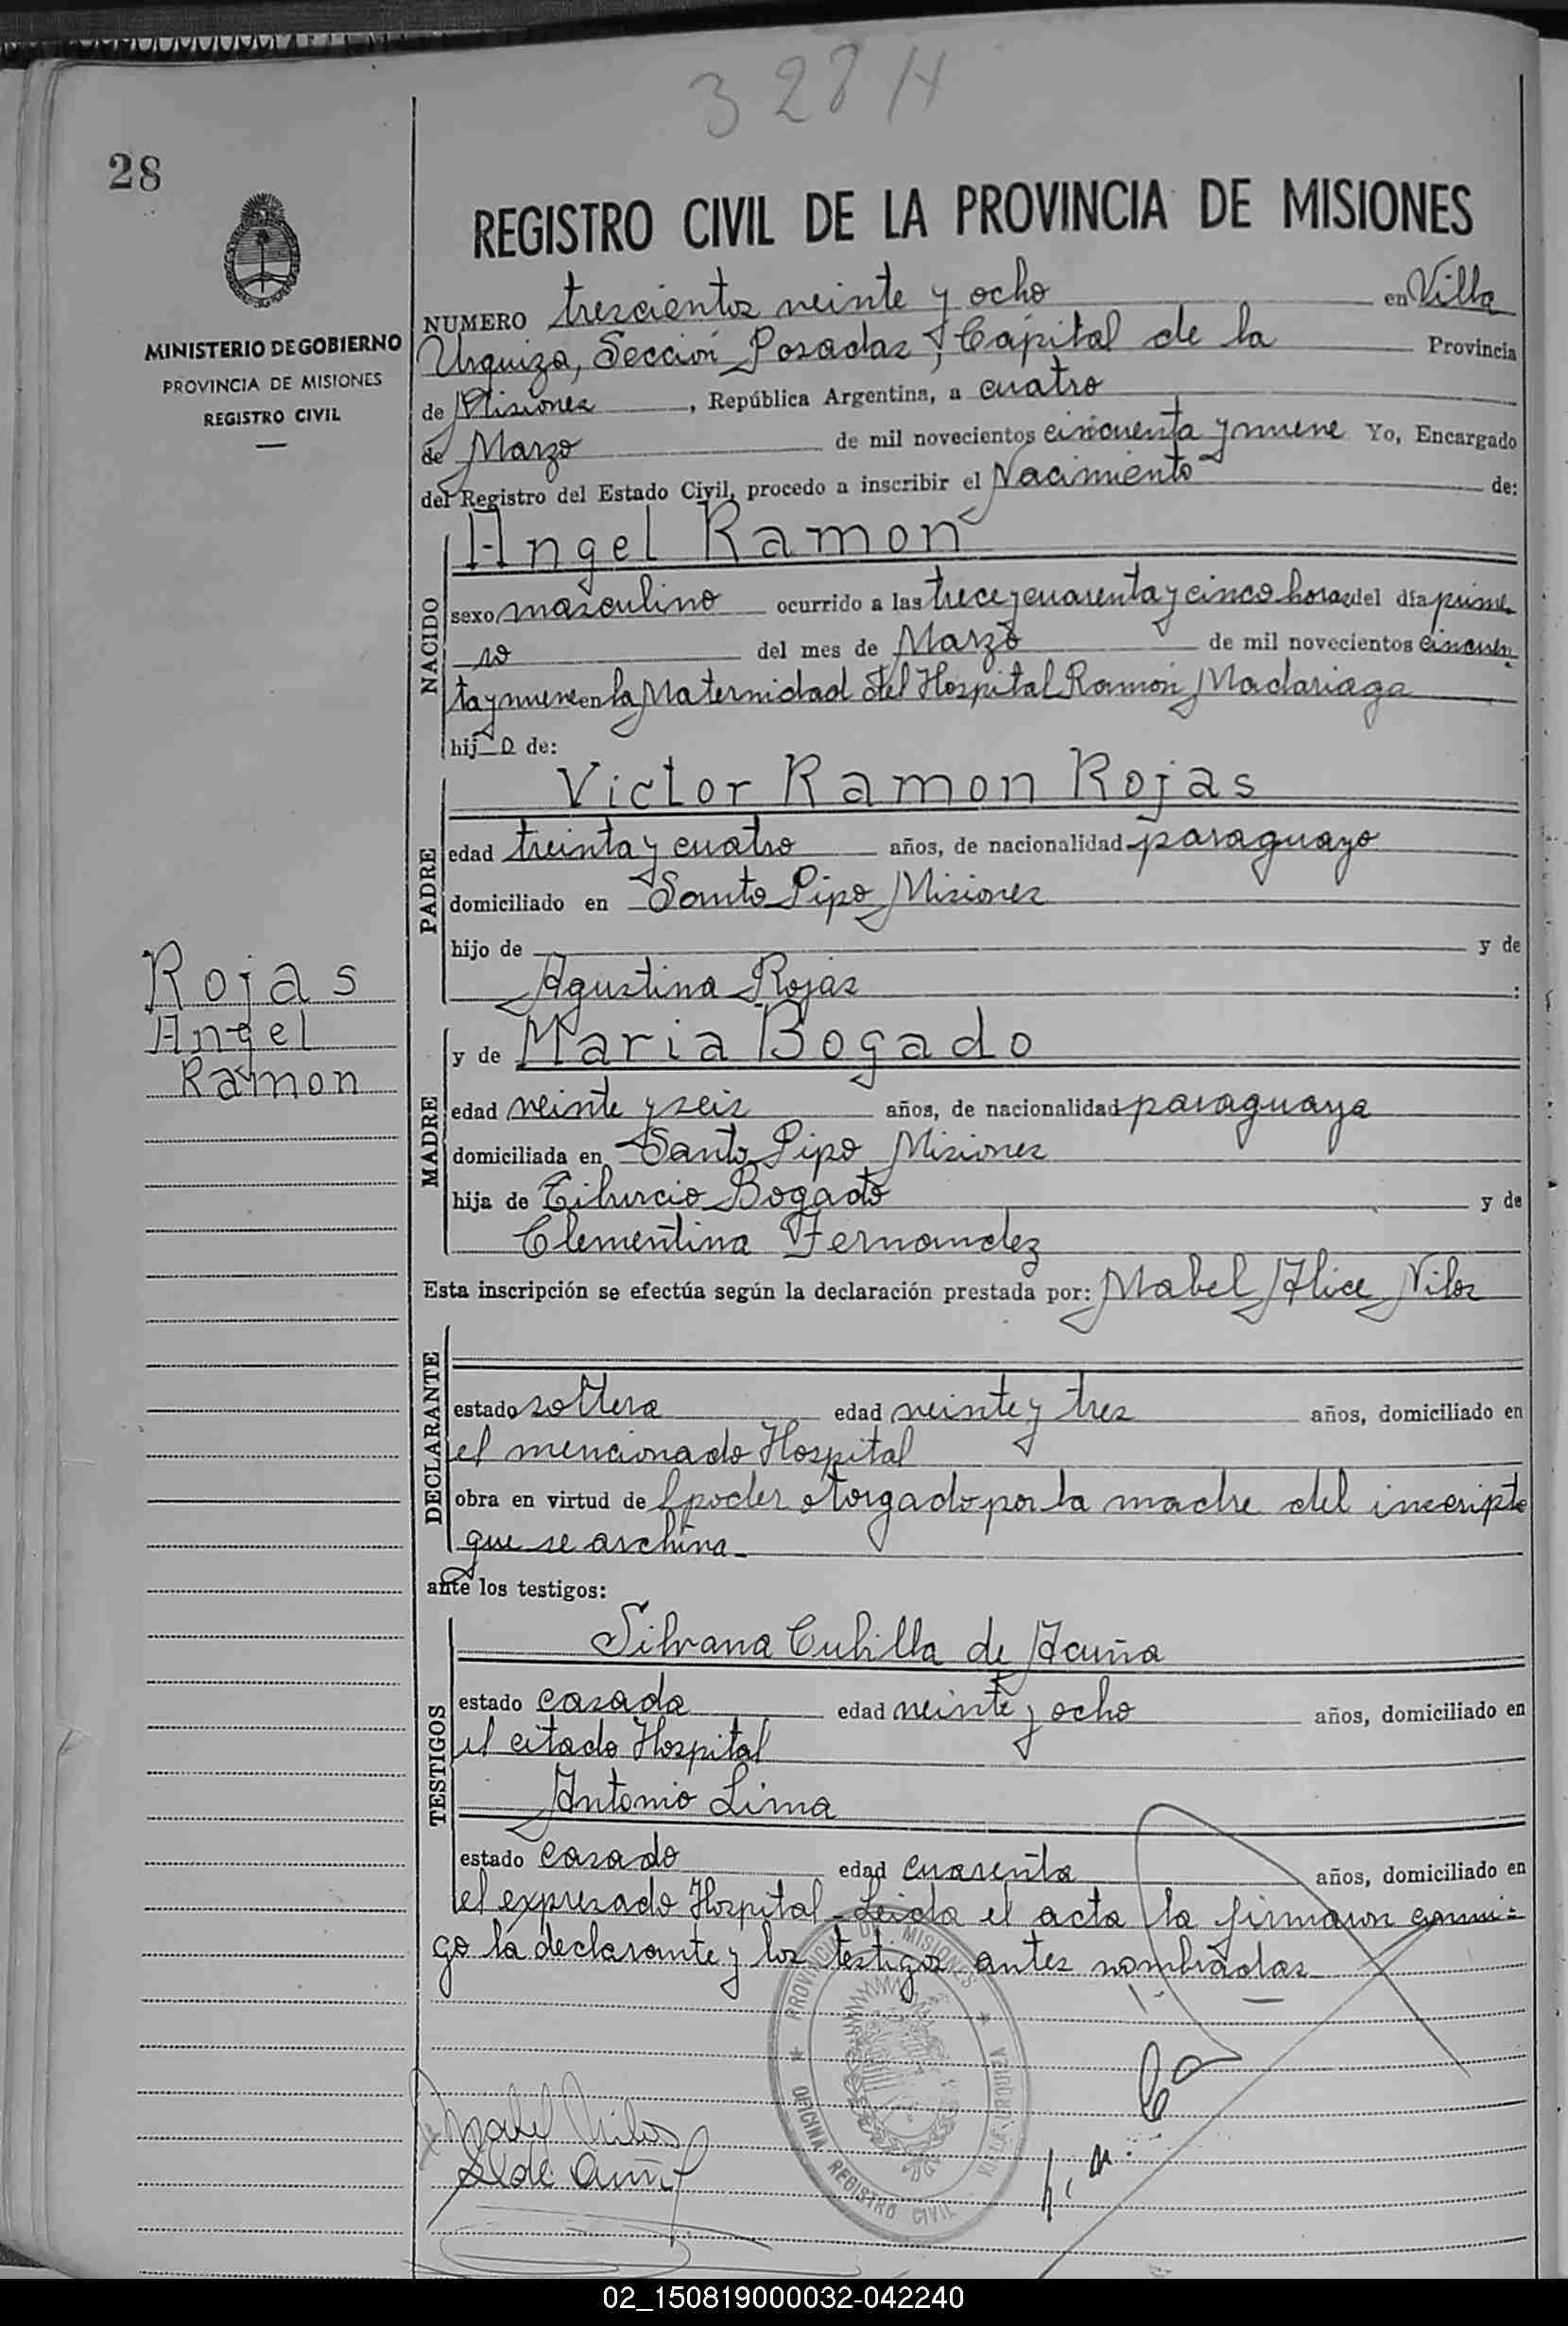 328 H
28
REGISTRO CIVIL DE LA PROVINCIA DE MISIONES
MINISTERIO DE GOBIERNO
PROVINCIA DE MISIONES
REGISTRO CIVIL
NUMERO trescientos veinte y ocho en Villa
Urquiza, Sección Posadas, Capital de la Provincia
de Misiones, República Argentina, a cuatro
de Marzo de mil novecientos cincuenta y nueve Yo, Encargado
del Registro del Estado Civil, procedo a inscribir el Nacimiento de:
NACIDO
Angel Ramon
sexo masculino ocurrido a las trece y cuarenta y cinco horas del día prime
ro del mes de Marzo de mil novecientos cincuen
ta y nueve en la Maternidad del Hospital Ramón Madariaga
hijo de:
PADRE
Victor Ramon Rojas
edad treinta y cuatro años, de nacionalidad paraguayo
domiciliado en Santo Pipo Misiones
hijo de y de
Agustina Rojas :
Rojas
Angel
Ramon
MADRE
y de Maria Bogado
edad veinte y seis años, de nacionalidad paraguaya
domiciliada en Santo Pipo Misiones
hija de Tiburcio Bogado y de
Clementina Fernandez
Esta inscripción se efectúa según la declaración prestada por: Mabel Alice Vilos
DECLARANTE
estado soltera edad veinte y tres años, domiciliado en
el mencionado Hospital
obra en virtud de l poder otorgado por la madre del inscripto
que se archiva
ante los testigos:
TESTIGOS
Silvana Cubilla de Acuña
estado casada edad veinte y ocho años, domiciliado en
el citado Hospital
Antonio Lima
estado casado edad cuarenta años, domiciliado en
el expresado Hospital - Leida el acta la firmaron conmi-
go la declarante y los testigos antes nombrados
PROVINCIA DE MISIONES
OFICINA REGISTRO CIVIL
VILLA URQUIZA
Mabel Vilos
S. de Acuña
02_150819000032-042240